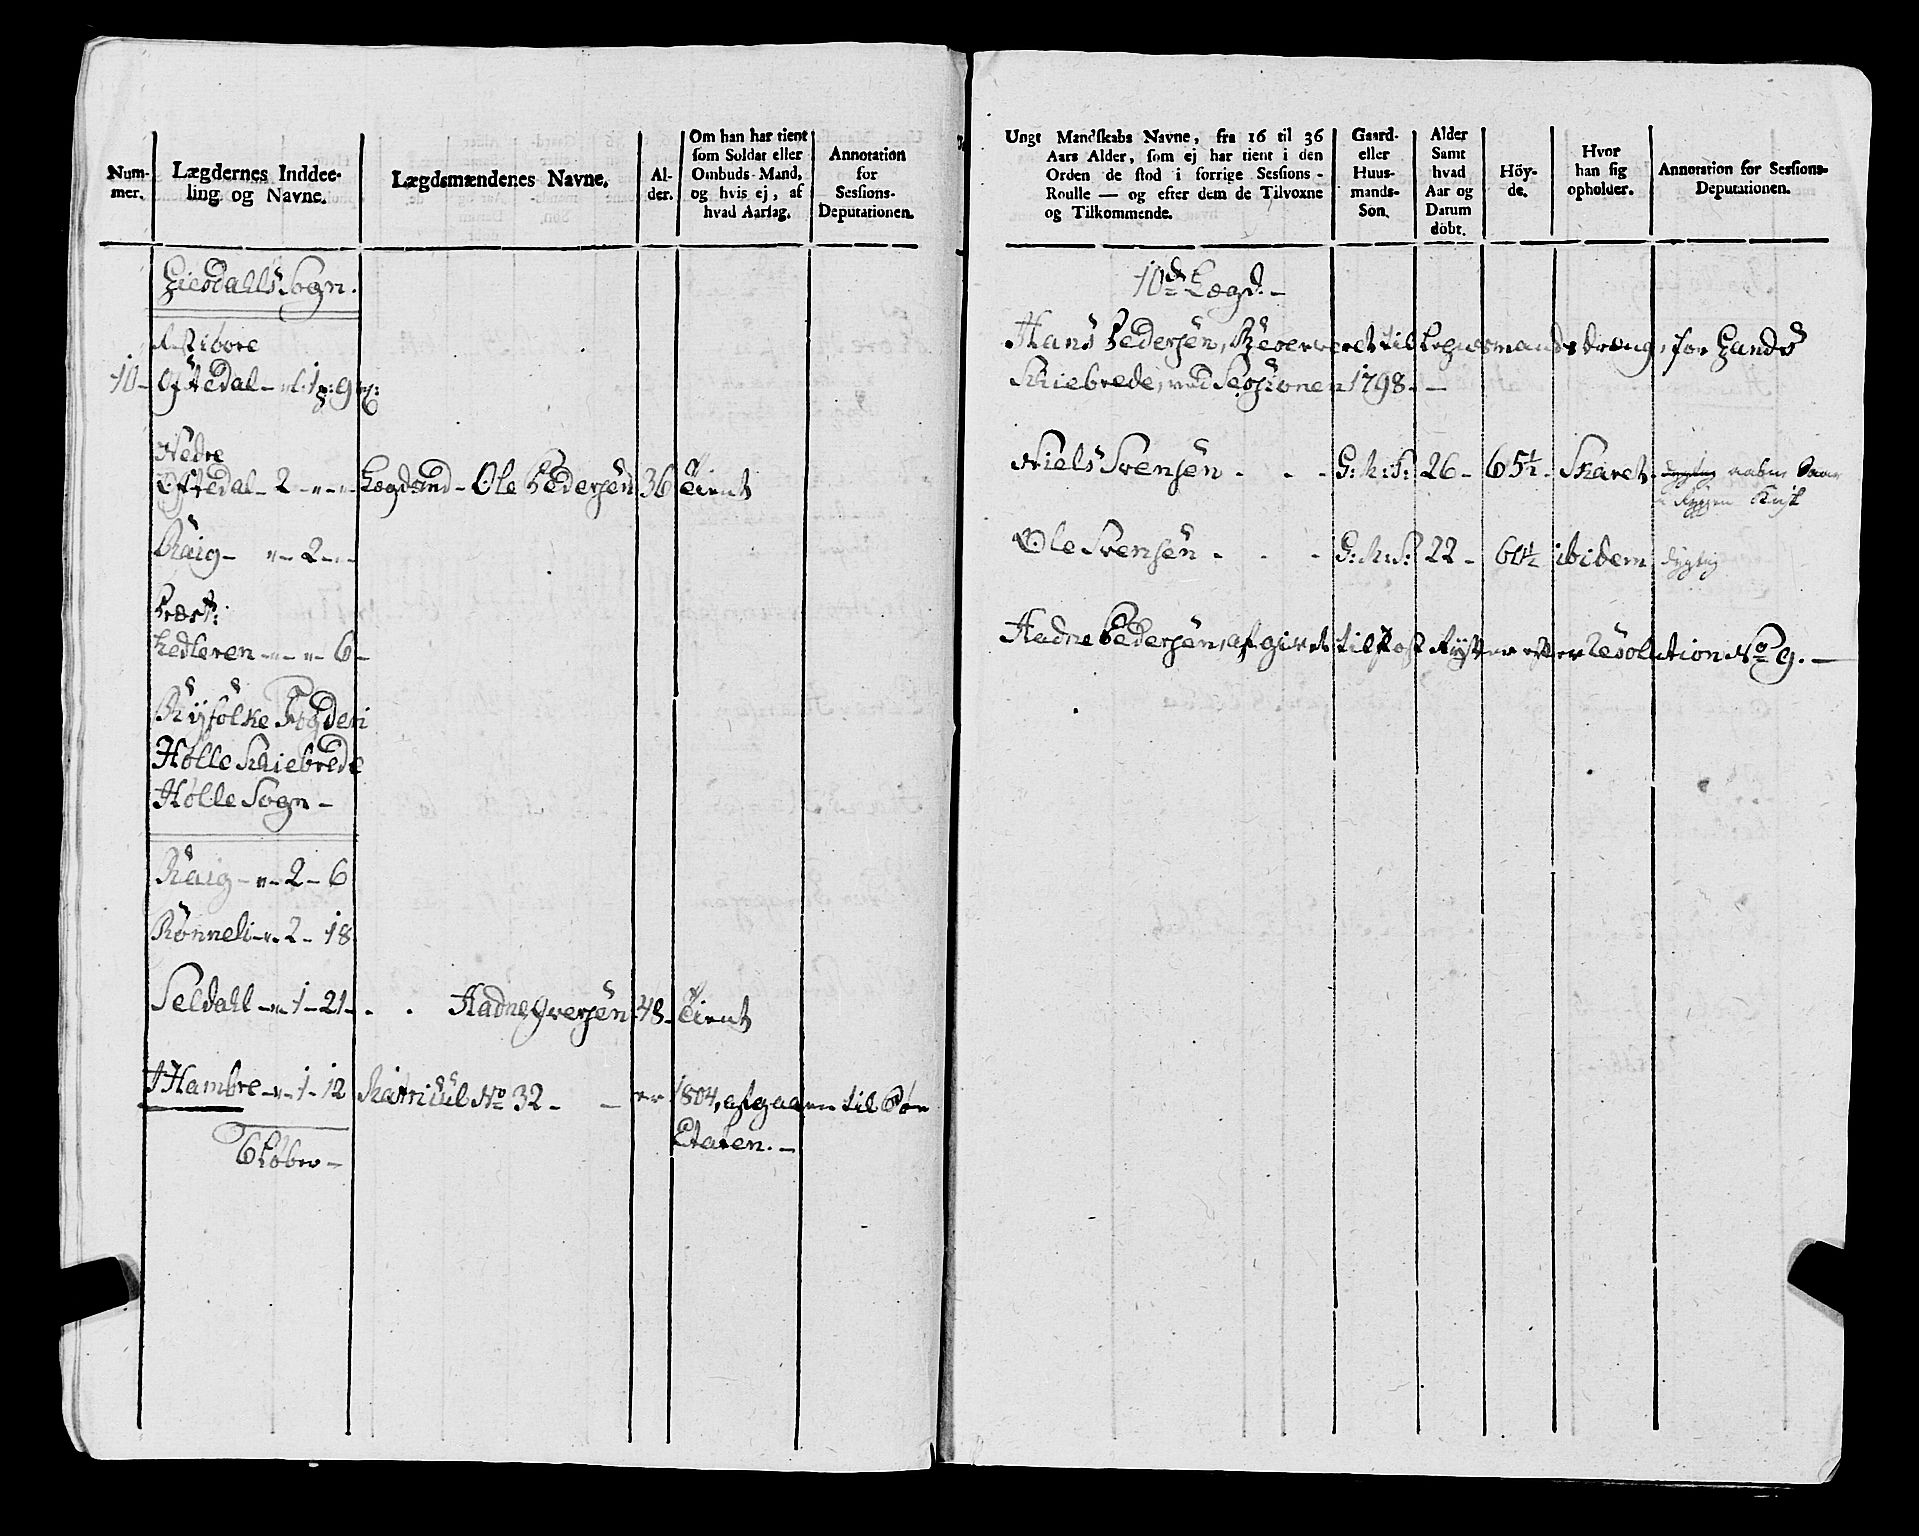 Num-
mer.
Lægdernes Inddee-
ling og Navne.
Lægdsmændenes Navne.
Al-
der.
Om han har tient
som Soldat eller
Ombuds-Mand,
og hvis ej, af
hvad Aarsag.
Annotation
for
Sessions-
Deputationen.
Giesdahls Sogn.
10- Oftedal
Nedre
Oftedal - 2 - Lægdsmd - Ole Pedersen 36 Tient
Raig - 2 -
Præst:
Kedleren - 6 -
Ryfölke Fogderi
Hølle Skiebrede
Hølle Sogn -
Raig - 2 - 6
Rönneli - 2 - 18
Seldall - 1 - 21 - Aadne Iversen 48 - Tient
Hambre - 1 - 12 Matricul No 32 - er 1804, afgaaen til Søe
Etaten. -
6 Løber -
Ungt Mandskabs Navne, fra 16 til 36
Aars Alder, som ej har tient i den
Orden de stod i forrige Sessions-
Roulle — og efter dem de Tilvoxne
og Tilkommende.
Gaard-
eller
Huus-
mands-
Søn.
Alder
Samt
hvad
Aar og
Datum
döbt.
Höy-
de.
Hvor
han sig
opholder.
Annotation for Sessions-
Deputationen.
10de Lægd. -
Hans Pedersen, Beordret til Lensmandsdreng, for Gands
Skiebrede, ved Sessionen 1798. -
Niels Svensen - - - G: M: S: 26 - 65½ - Skaret - dygtig aaben Saar
Ole Svensen - - - G: M: S: 22 - 61½ ibidem dygtig
Aadne Pedersen, afgivet til Post efter Resolution No 9. -